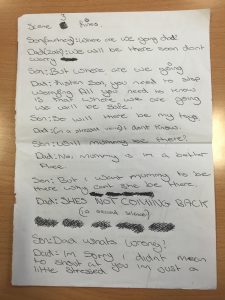 Scene 3
Son: Where are we going dad?
Dad: We will be there soon dont
worry
Son: But where are we going
Dad: listen Son, you need to stop
worrying All you need to know
is that where we are going
we will be safe.
Son: So will there be my toys,
Dad: (in a stressed voice) I dont know.
Son: Will mummy be there?
Dad: No, mummy is in a better
place.
Son: But I want mummy to be
there why cant she be there.
Dad: SHES NOT COMING BACK
Son: Dad whats wrong?
Dad: Im Sorry I didnt mean
to shout at you im just a
little stressed